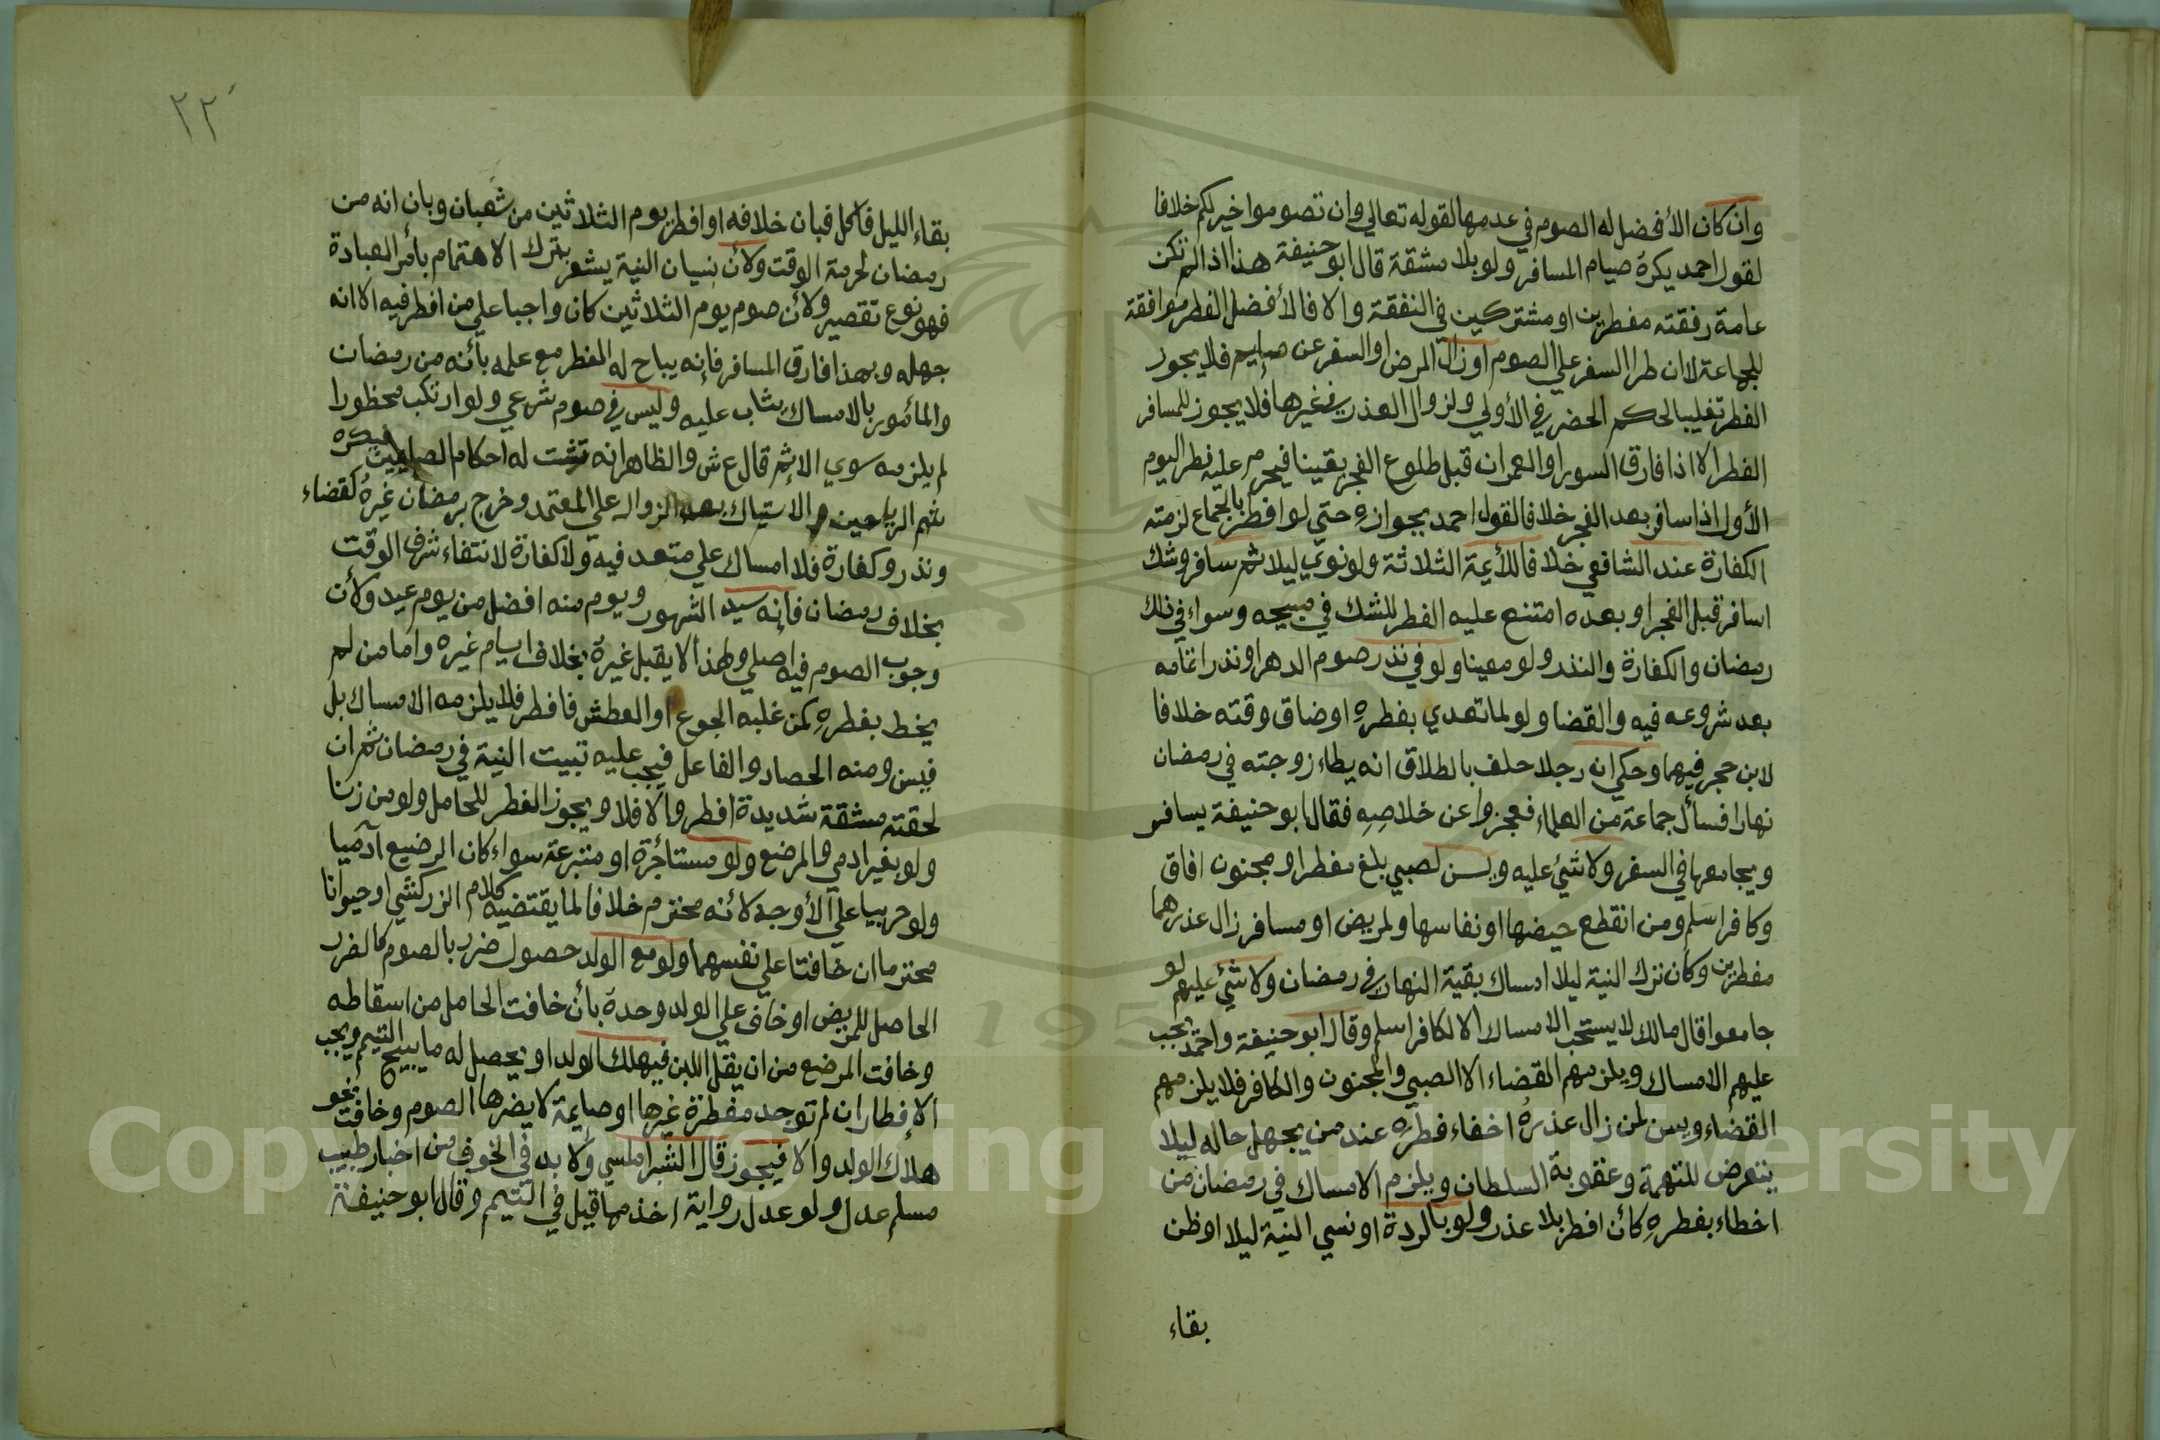 وان كان الأفضل له الصوم في عدمها لقوله تعالي وان تصوموا خير لكم خلافا
لقول احمد يكره صيام المسافر ولو بلا مشقة قال ابو حنيفة هذا اذا لم تكن
عامة رفقته مفطرين او مشتركين في النفقة والا فالأفضل الفطر موافقة
للجماعة لا ان طرا السفر علي الصوم او زال المرض او السفر عن صايم فلا يجوز
الفطر تغليبا لحكم الحضر في الأولي ولزوال العذر في غيرها فلا يجوز للمسافر
الفطر الا اذا فارق السور او العمران قبل طلوع الفجر يقينا فيحرم عليه فطر اليوم
الأول اذا سافر بعد الفجر خلافا لقول احمد بجوازه حتي لو افطر بالجماع لزمته
الكفارة عند الشافعي خلافا للأيمة الثلاثة ولو نوي ليلا ثم سافر وشك
اسافر قبل الفجر او بعده امتنع عليه الفطر للشك في مبيحه وسواء في ذلك
رمضان والكفارة والنذر ولو معينا ولو في نذر صوم الدهر او نذر اتمامه
بعد شروعه فيه والقضا ولو لما تعدي بفطره او ضاق وقته خلافا
لابن حجر فيهما وحكي ان رجلا حلف بالطلاق انه يطاء زوجته في رمضان
نهارا فسأل جماعة من العلماء فعجزوا عن خلاصه فقال ابو حنيفة يسافر
ويجامعها في السفر ولا شئ عليه ويسن لصبي بلغ مفطرا ومجنون افاق
وكافر اسلم ومن انقطع حيضها او نفاسها ولمريض او مسافر زال عذرهما
مفطرين وكأن ترك النية ليلا امساك بقية النهار في رمضان ولا شئ عليهم لو
جامعوا قال مالك لا يستحب الامساك الا لكافر اسلم وقال ابو حنيفة واحمد يجب
عليهم الامساك ويلزمهم القضاء الا الصبي والمجنون والكافر فلا يلزمهم
القضاء ويسن لمن زال عذره اخفاء فطره عند من يجهل حاله ليلا
يتعرض للتهمة وعقوبة السلطان ويلزم الامساك في رمضان من
اخطاء بفطره كأن افطر بلا عذر ولو بالردة او نسي النية ليلا او ظن
بقاء
٢٢٠
بقاء الليل فأكل فبان خلافه او افطر يوم الثلاثين من شعبان وبان انه من
رمضان لحرمة الوقت ولأن نسيان النية يشعر بترك الاهتمام بأمر العبادة
فهو نوع تقصير ولأن صوم يوم الثلاثين كان واجبا علي من افطر فيه الا انه
جهله وبهذا فارق المسافر فإنه يباح له الفطر مع علمه بأنه من رمضان
والمأمور بالامساك يثاب عليه وليس في صوم شرعي ولو ارتكب محظورا
لم يلزمه سوي الاثم قال ع ش والظاهر انه تثبت له احكام الصايمين فيكره
شم الرياحين والاستياك بعد الزوال علي المعتمد وخرج برمضان غيره كقضاء
ونذر وكفارة فلا امساك علي متعد فيه ولا كفارة لانتفاء شرف الوقت
بخلاف رمضان فإنه سيد الشهور ويوم منه افضل من يوم عيد ولأن
وجوب الصوم فيه اصلي ولهذا لا يقبل غيره بخلاف ايام غيره واما من لم
يخط بفطره كمن غلبه الجوع او العطش فافطر فلا يلزمه الامساك بل
فيسن ومنه الحصاد والفاعل فيجب عليه تبيت النية في رمضان ثم ان
لحقته مشقة شديدة افطر والا فلا ويجوز الفطر للحامل ولو من زنا
ولو بغير ادمي والمرضع ولو مستأجرة او متبرعة سواء كان الرضيع آدميا
ولو حربيا علي الأوجه لأنه محترم خلافا لما يقتضيه كلام الزركشي او حيوانا
محترما ان خافتا علي نفسهما ولو مع الولد حصول ضرر بالصوم كالضرر
الحاصل للمريض او خاف علي الولد وحده بأن خافت الحامل من اسقاطه
وخافت المرضع من ان يقل اللبن فيهلك الولد او يحصل له ما يبيح التيمم ويجب
الإفطار ان لم توجد مفطرة غيرها او صايمة لا يضرها الصوم وخافت نحو
هلاك الولد والا فيجوز قال الشبراملسي ولا بد في الخوف من اخبار طبيب
مسلم عدل ولو عدل رواية اخذ مما قيل في التيمم وقال ابو حنيفة